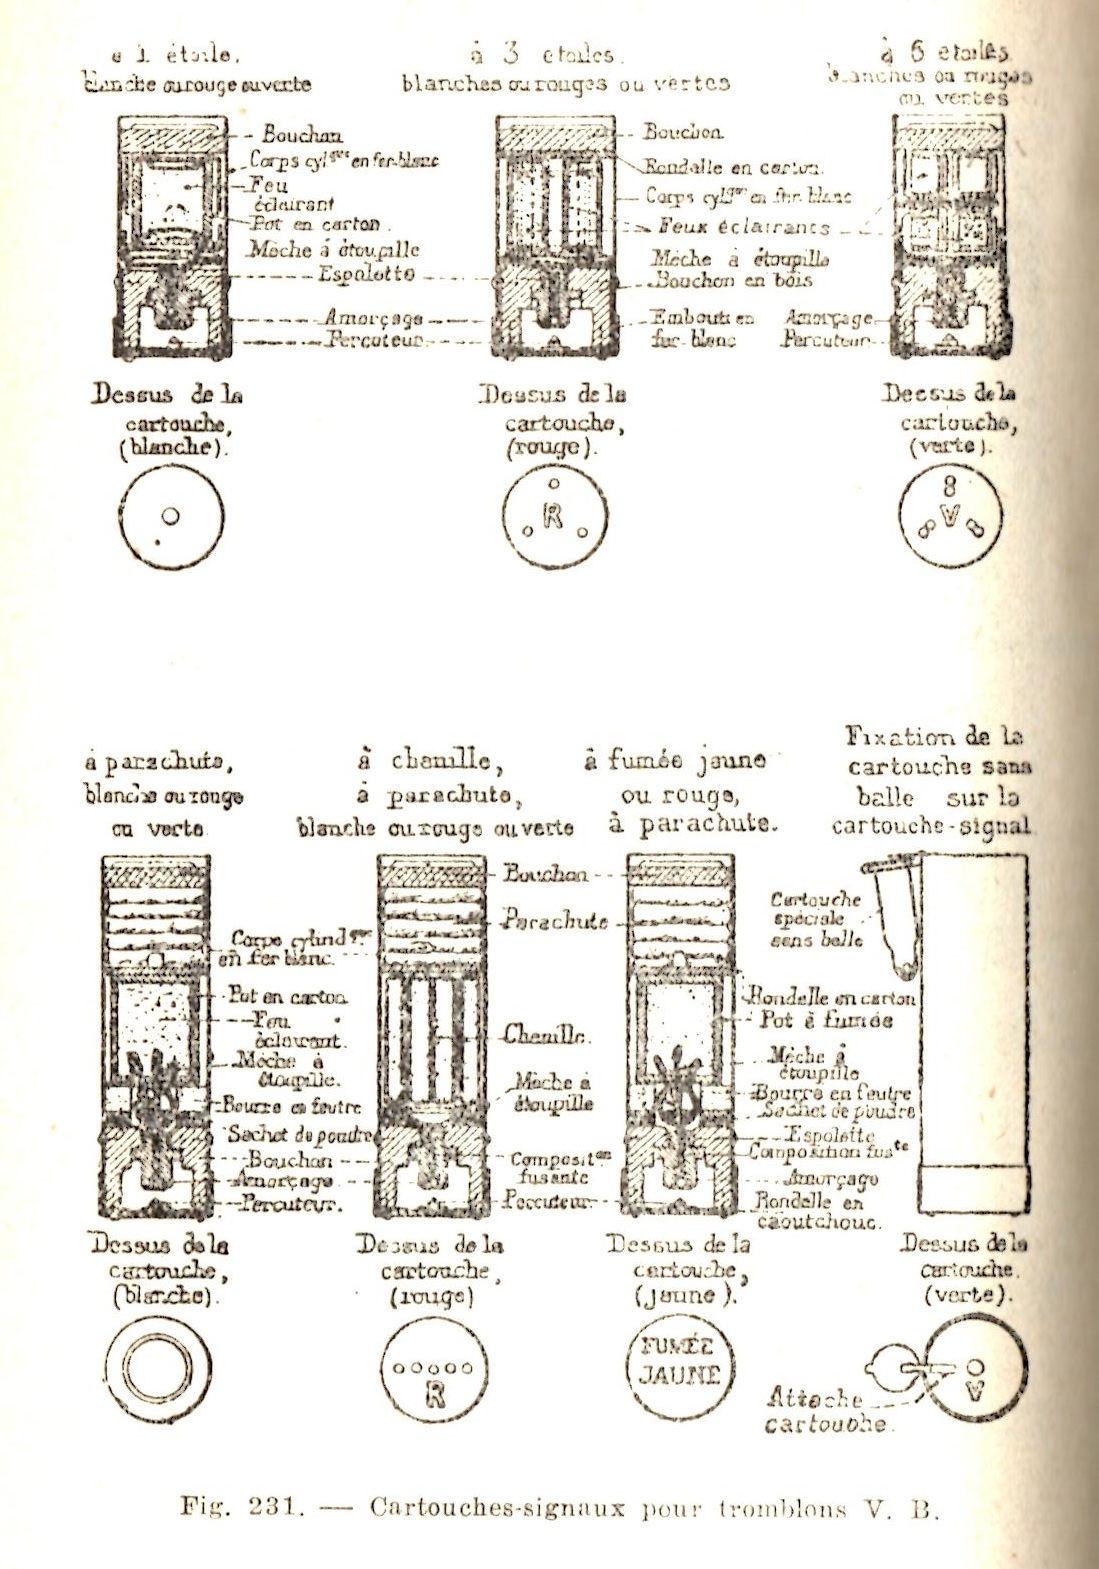 à 1 étoile.
blanche ou rouge ou verte
à 3 etoiles.
blanches ou rouges ou vertes
à 6 etoiles.
blanches ou rouges
ou vertes
Bouchon
Corps cyl^que en fer-blanc
Feu
éclairant
Pot en carton.
Mèche à étoupille
Espolette
Amorçage
Percuteur.
Bouchon
Rondelle en carton.
Corps cyl^que en fer-blanc
Feux éclairants
Mèche à étoupille
Bouchon en bois
Embouti en
fer-blanc
Amorçage
Percuteur
Dessus de la
cartouche,
(blanche).
Dessus de la
cartouche,
(rouge).
R
Dessus de la
cartouche,
(verte).
V
à parachute,
blanche ou rouge
ou verte
à chenille,
à parachute,
blanche ou rouge ou verte
à fumée jaune
ou rouge,
à parachute.
Fixation de la
cartouche sans
balle sur la
cartouche-signal
Corps cylind^que
en fer blanc.
Pot en carton
Feu
éclairant.
Mèche à
étoupille.
Bourre en feutre
Sachet de poudre
Bouchon
Amorçage
Percuteur.
Bouchon
Parachute
Chenille.
Mèche à
étoupille
Composit^on
fusante
Percuteur
Rondelle en carton
Pot à fumée
Mèche à
étoupille
Bourre en feutre
Sachet de poudre
Espolette
Composition fus^te
Amorçage
Rondelle en
caoutchouc.
Cartouche
spéciale
sans balle
Dessus de la
cartouche,
(blanche).
Dessus de la
cartouche,
(rouge)
R
Dessus de la
cartouche,
(jaune).
FUMÉE
JAUNE
Dessus de la
cartouche.
(verte).
V
Attache
cartouche.
Fig. 231. — Cartouches-signaux pour tromblons V. B.